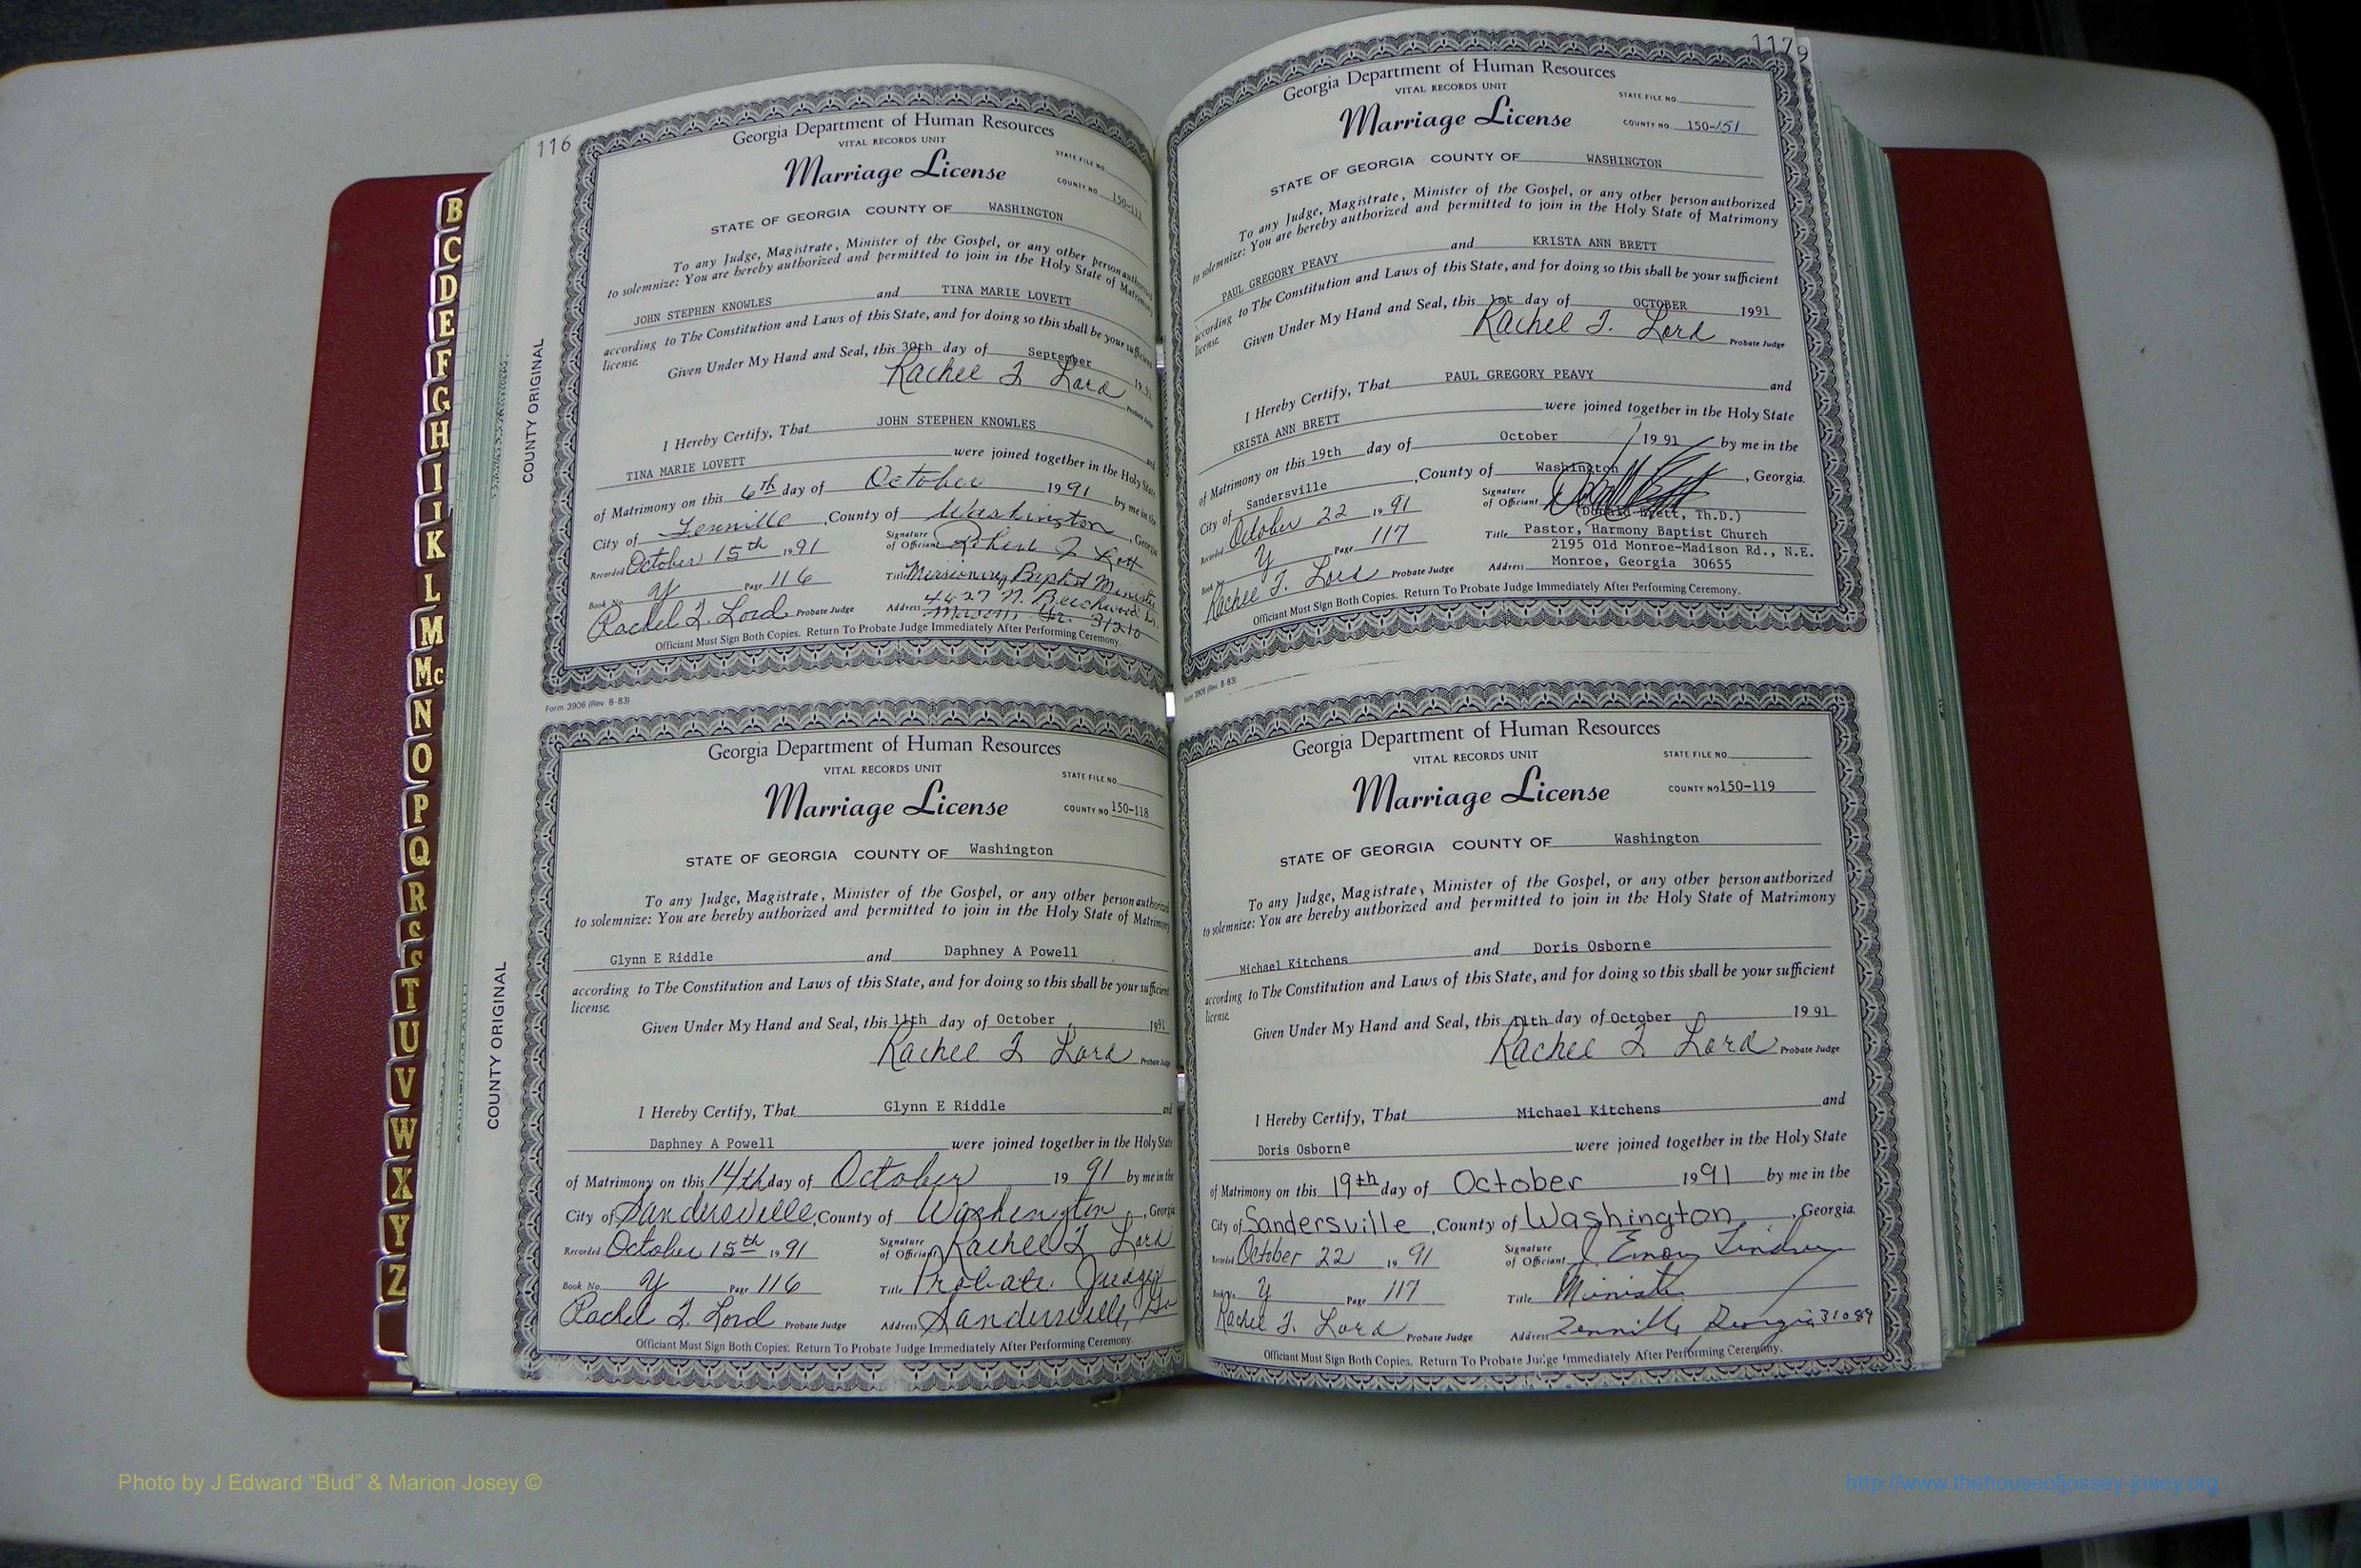 116
COUNTY ORIGINAL
Georgia Department of Human Resources
VITAL RECORDS UNIT
Marriage License
STATE FILE NO.
COUNTY NO.
STATE OF GEORGIA COUNTY OF WASHINGTON
To any Judge, Magistrate, Minister of the Gospel, or any other person authorized
to solemnize: You are hereby authorized and permitted to join in the Holy State of Matrimony
JOHN STEPHEN KNOWLES and TINA MARIE LOVETT
according to The Constitution and Laws of this State, and for doing so this shall be your sufficient
license.
Given Under My Hand and Seal, this 30th day of September 1991
Rachel T Lord Probate Judge
I Hereby Certify, That JOHN STEPHEN KNOWLES and
TINA MARIE LOVETT were joined together in the Holy State
of Matrimony on this 6th day of October 1991 by me in the
City of Tennille, County of Washington, Georgia
Recorded October 15th, 1991 Signature of Officiant
Book No. Y Page 116 Title Missionary Baptist Minister
Rachel T. Lord Probate Judge Address 4427 N. Beechwood Dr.
Macon, Ga. 31210
Officiant Must Sign Both Copies. Return To Probate Judge Immediately After Performing Ceremony.
Form 3906 (Rev. 8-83)
COUNTY ORIGINAL
Georgia Department of Human Resources
VITAL RECORDS UNIT
Marriage License
STATE FILE NO.
COUNTY NO. 150-118
STATE OF GEORGIA COUNTY OF Washington
To any Judge, Magistrate, Minister of the Gospel, or any other person authorized
to solemnize: You are hereby authorized and permitted to join in the Holy State of Matrimony
Glynn E Riddle and Daphney A Powell
according to The Constitution and Laws of this State, and for doing so this shall be your sufficient
license.
Given Under My Hand and Seal, this 11th day of October 1991
Rachel T Lord Probate Judge
I Hereby Certify, That Glynn E Riddle and
Daphney A Powell were joined together in the Holy State
of Matrimony on this 14th day of October 1991 by me in the
City of Sandersville, County of Washington, Georgia
Recorded October 15th, 1991 Signature of Officiant Rachel T Lord
Book No. Y Page 116 Title Probate Judge
Rachel T. Lord Probate Judge Address Sandersville, Ga
Officiant Must Sign Both Copies. Return To Probate Judge Immediately After Performing Ceremony.
117
9
Georgia Department of Human Resources
VITAL RECORDS UNIT
Marriage License
STATE FILE NO.
COUNTY NO. 150-151
STATE OF GEORGIA COUNTY OF WASHINGTON
To any Judge, Magistrate, Minister of the Gospel, or any other person authorized
to solemnize: You are hereby authorized and permitted to join in the Holy State of Matrimony
PAUL GREGORY PEAVY and KRISTA ANN BRETT
according to The Constitution and Laws of this State, and for doing so this shall be your sufficient
license.
Given Under My Hand and Seal, this 1st day of OCTOBER 1991
Rachel T. Lord Probate Judge
I Hereby Certify, That PAUL GREGORY PEAVY and
KRISTA ANN BRETT were joined together in the Holy State
of Matrimony on this 19th day of October 1991 by me in the
City of Sandersville, County of Washington, Georgia.
Recorded October 22 1991 Signature of Officiant
(Donald Brett, Th.D.)
Book No. Y Page 117 Title Pastor, Harmony Baptist Church
2195 Old Monroe-Madison Rd., N.E.
Rachel T. Lord Probate Judge Address Monroe, Georgia 30655
Officiant Must Sign Both Copies. Return To Probate Judge Immediately After Performing Ceremony.
Form 3906 (Rev. 8-83)
Georgia Department of Human Resources
VITAL RECORDS UNIT
Marriage License
STATE FILE NO.
COUNTY NO 150-119
STATE OF GEORGIA COUNTY OF Washington
To any Judge, Magistrate, Minister of the Gospel, or any other person authorized
to solemnize: You are hereby authorized and permitted to join in the Holy State of Matrimony
Michael Kitchens and Doris Osborne
according to The Constitution and Laws of this State, and for doing so this shall be your sufficient
license.
Given Under My Hand and Seal, this 11th day of October 1991
Rachel T Lord Probate Judge
I Hereby Certify, That Michael Kitchens and
Doris Osborne were joined together in the Holy State
of Matrimony on this 19th day of October 1991 by me in the
City of Sandersville, County of Washington, Georgia.
Recorded October 22 1991 Signature of Officiant J. Emory Lindsey
Book No. Y Page 117 Title Minister
Rachel T. Lord Probate Judge Address Tennille, Georgia 31089
Officiant Must Sign Both Copies. Return To Probate Judge Immediately After Performing Ceremony.
B
C
D
E
F
G
H
I
J
K
L
M
Mc
N
O
P
Q
R
S
S
T
U
V
W
X
Y
Z
Photo by J Edward “Bud” & Marion Josey ©
http://www.thehouseofjossey-josey.org